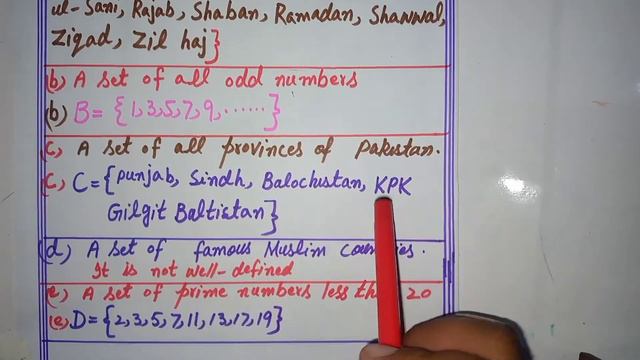 ul-Sani, Rajab, Shaban, Ramadan, Shawwal,
Ziqad, Zil haj}
(b) A set of all odd numbers
(b) B = {1,3,5,7,9, ......}
(c) A set of all provinces of Pakistan.
(c) C = {Punjab, Sindh, Balochistan, KPK
Gilgit Baltistan}
(d) A set of famous Muslim
It is not well-defined
(e) A set of prime numbers less 20
(e) D = {2,3,5,7,11,13,17,19}